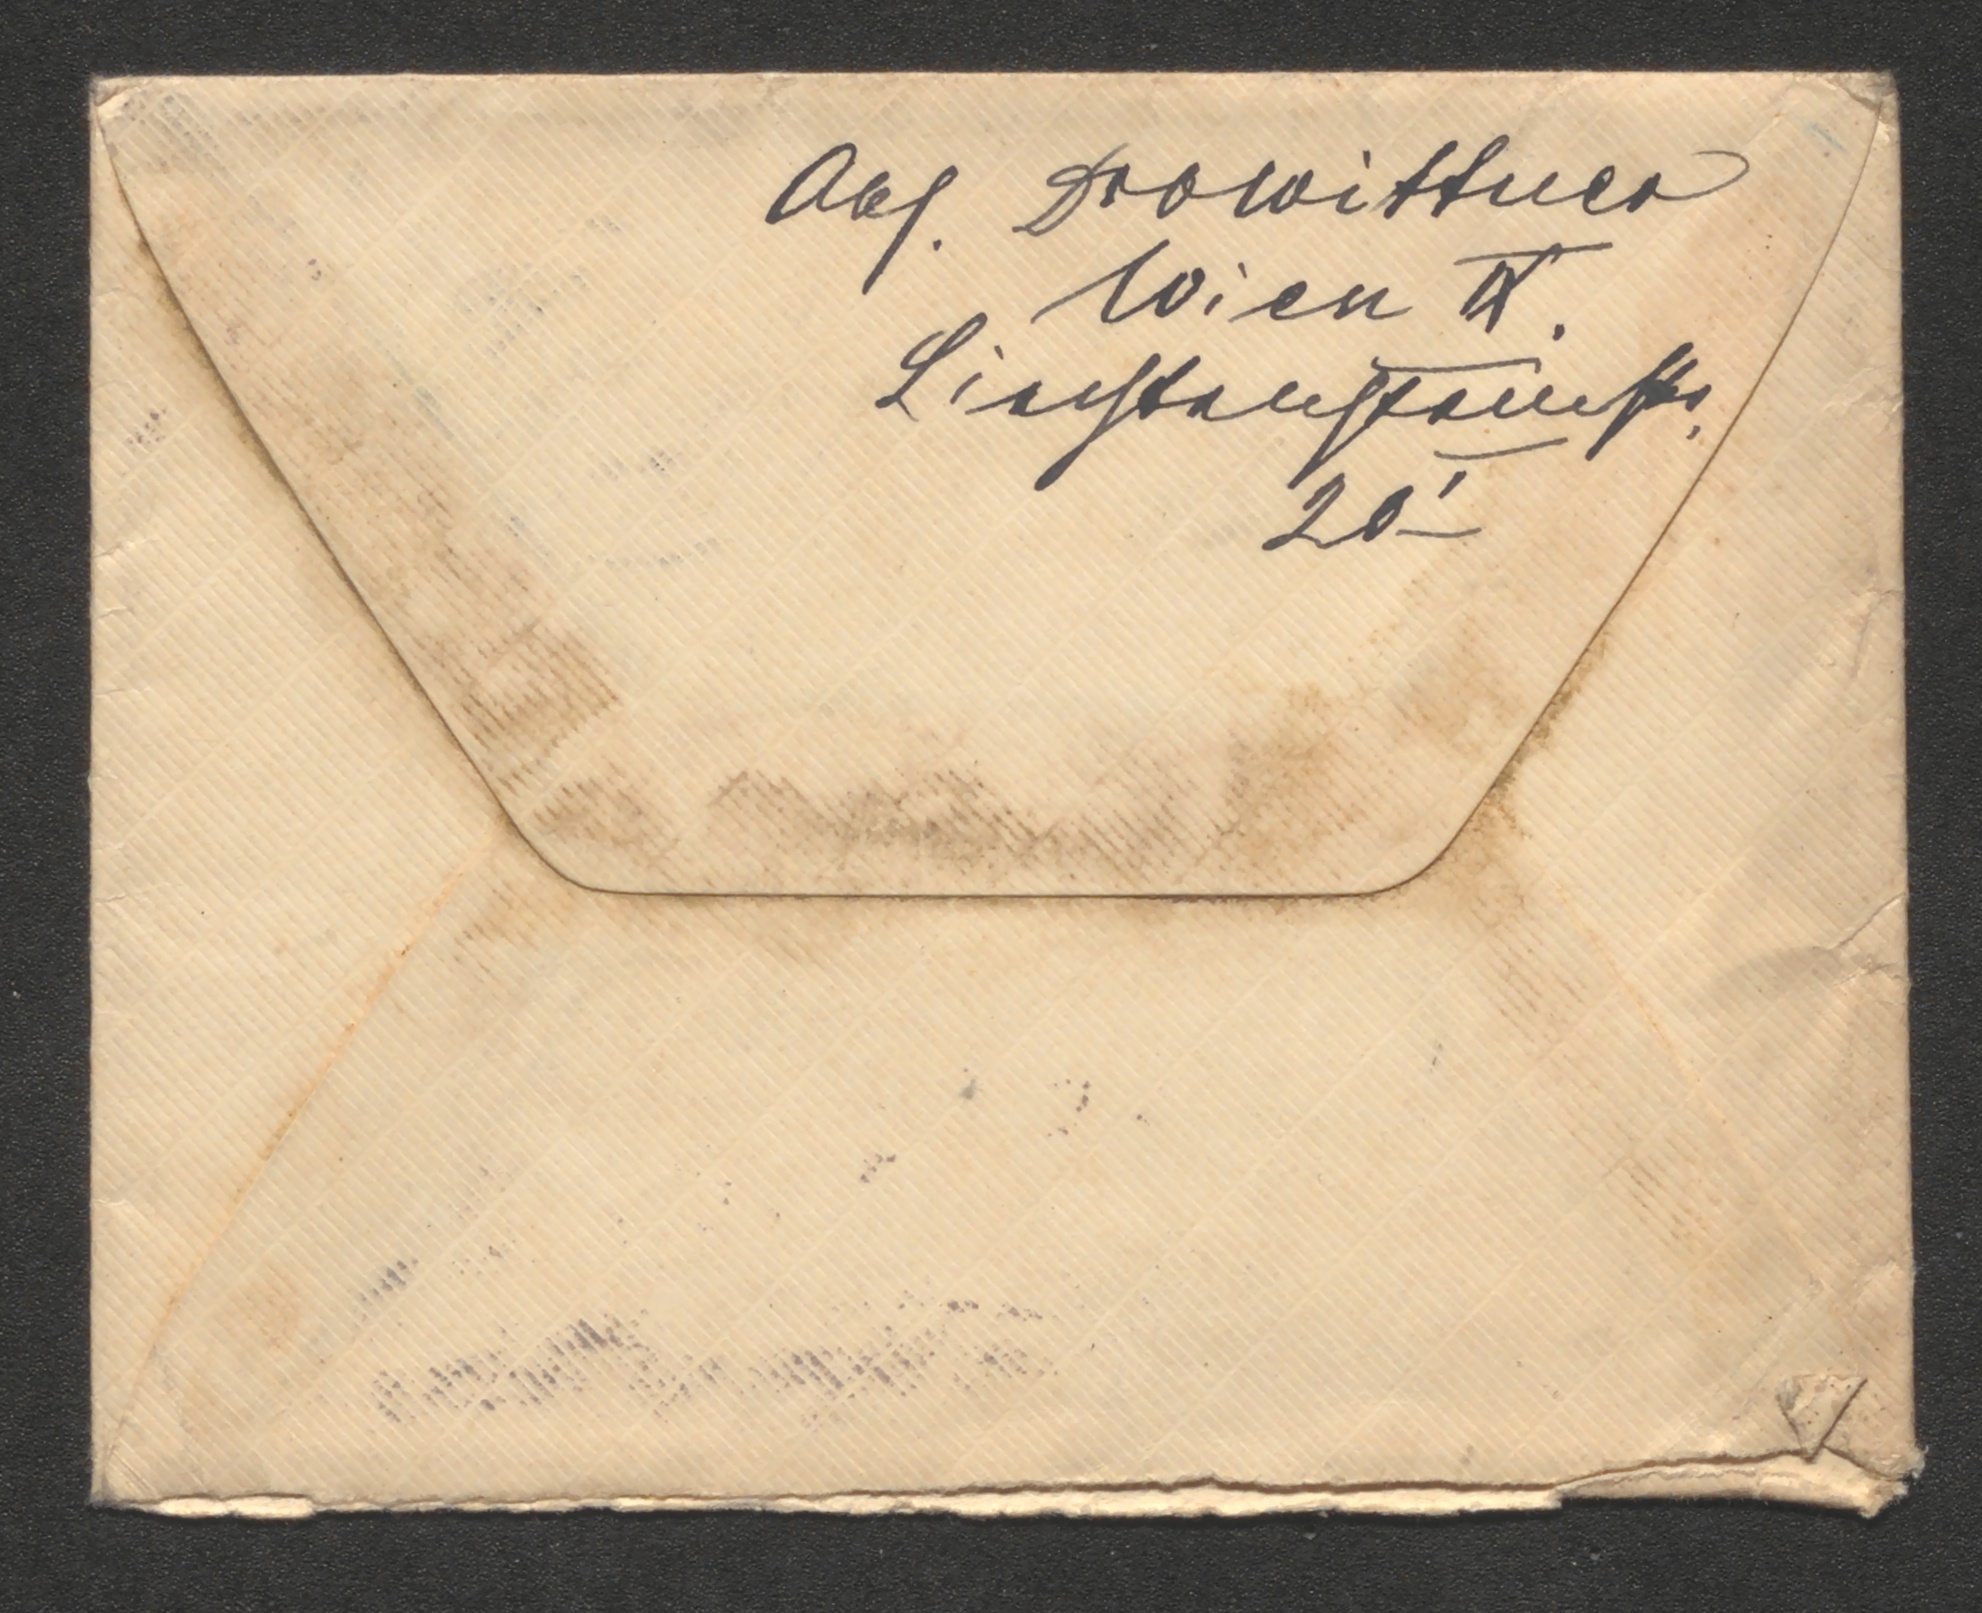 Abs. Dr. Wittner
Wien IX.
Liechtensteinstr.
20